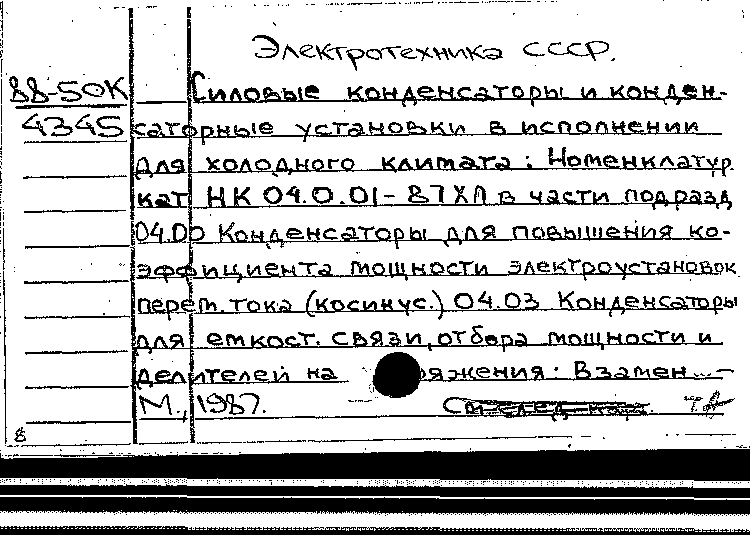 Электротехника СССР.
88-50К Силовые конденсаторы и конден-
4345 саторные установки в исполнении
для холодного климата: Номенклатур.
кат НК 04.0.01-87ХЛ в части подразд
04.00 Конденсаторы для повышения ко-
эффициента мощности электроустановок
перем. тока (косинус.) 04.03 Конденсаторы
для емкост. связи, отбора мощности и
делителей на ряжения. Взамен...-
М., 1987. См след карт.
8